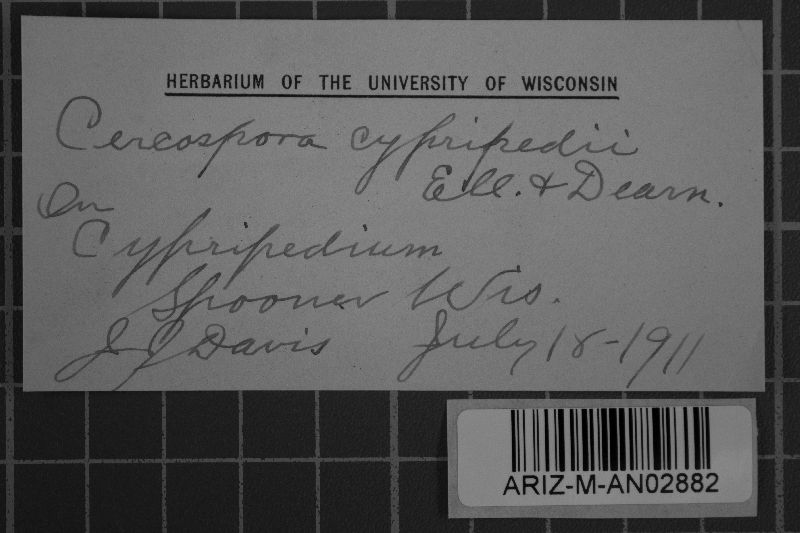 HERBARIUM OF THE UNIVERSITY OF WISCONSIN
Cercospora cypripedii
Ell. & Dearn.
On
Cypripedium
Spooner Wis.
J J Davis July 18-1911
ARIZ-M-AN02882